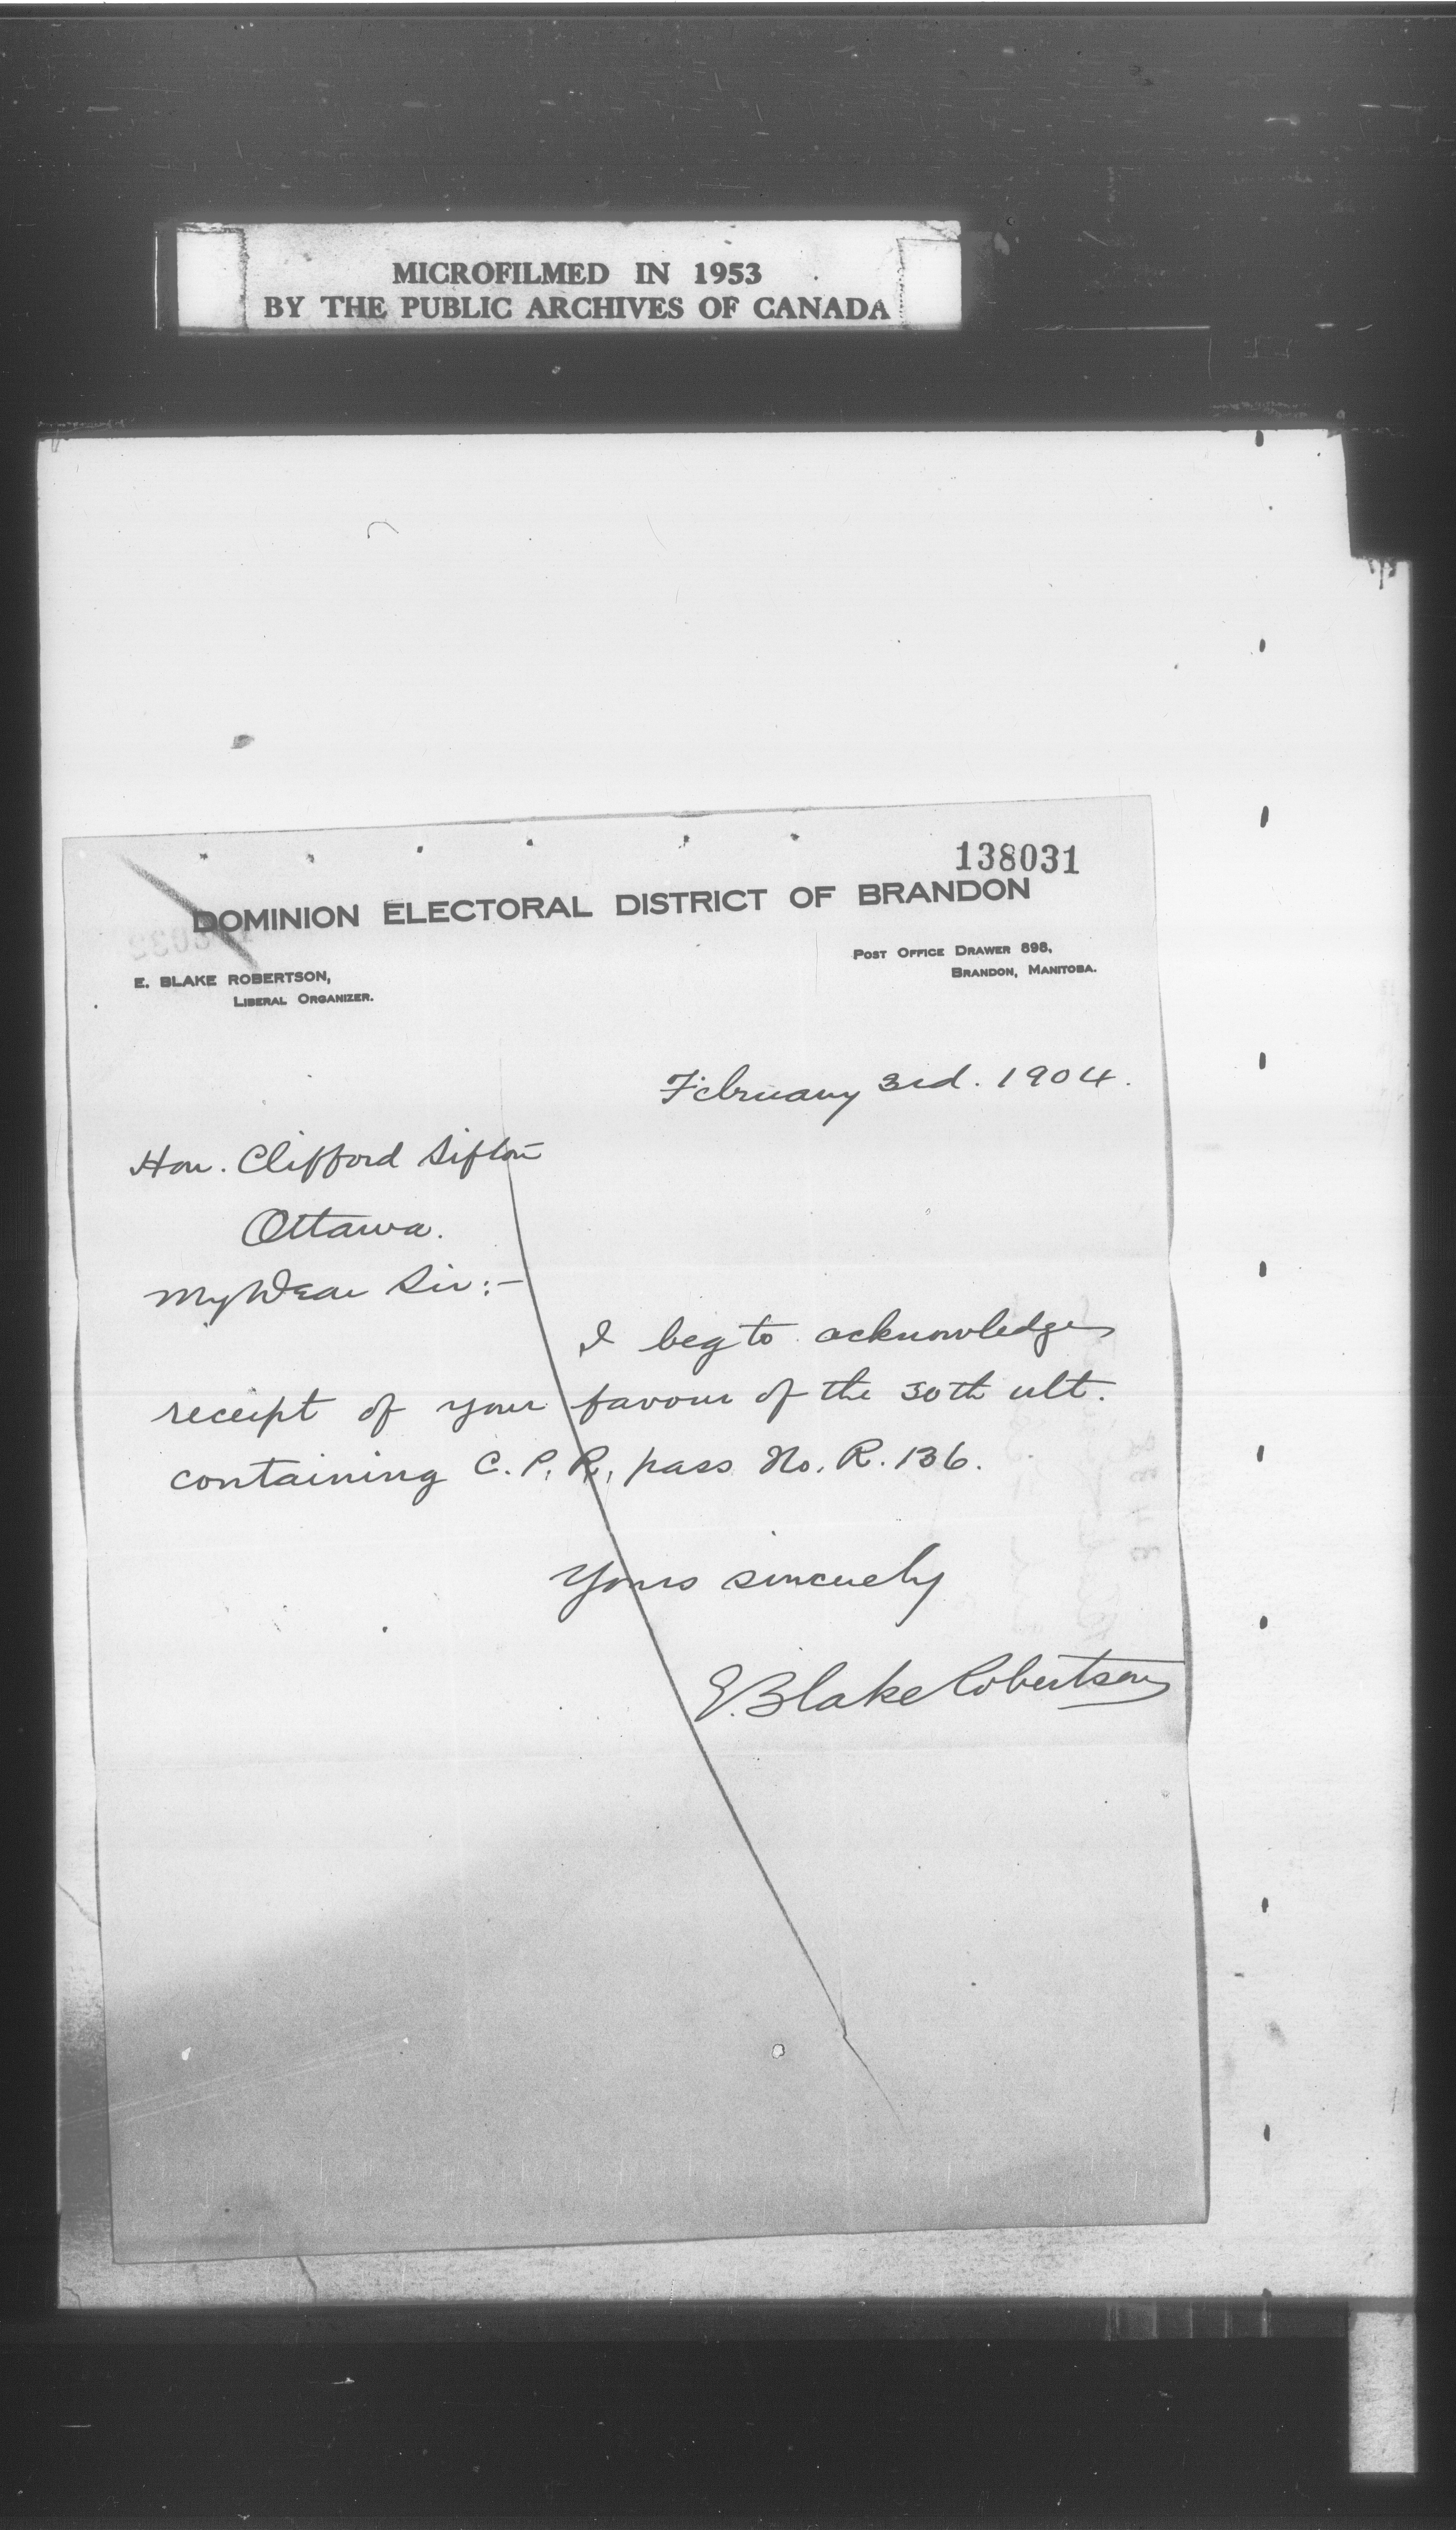 MICROFILMED IN 1953
BY THE PUBLIC ARCHIVES OF CANADA
138031
DOMINION ELECTORAL DISTRICT OF BRANDON
POST OFFICE DRAWER 898,
BRANDON, MANITOBA.
E. BLAKE ROBERTSON,
LIBERAL ORGANIZER.
February 3rd. 1904.
Hon. Clifford Sifton
Ottawa.
My Dear Sir:-
I beg to acknowledge
receipt of your favour of the 30th ult.
containing C.P.R. pass No. R. 136.
Yours sincerely
E. Blake Robertson